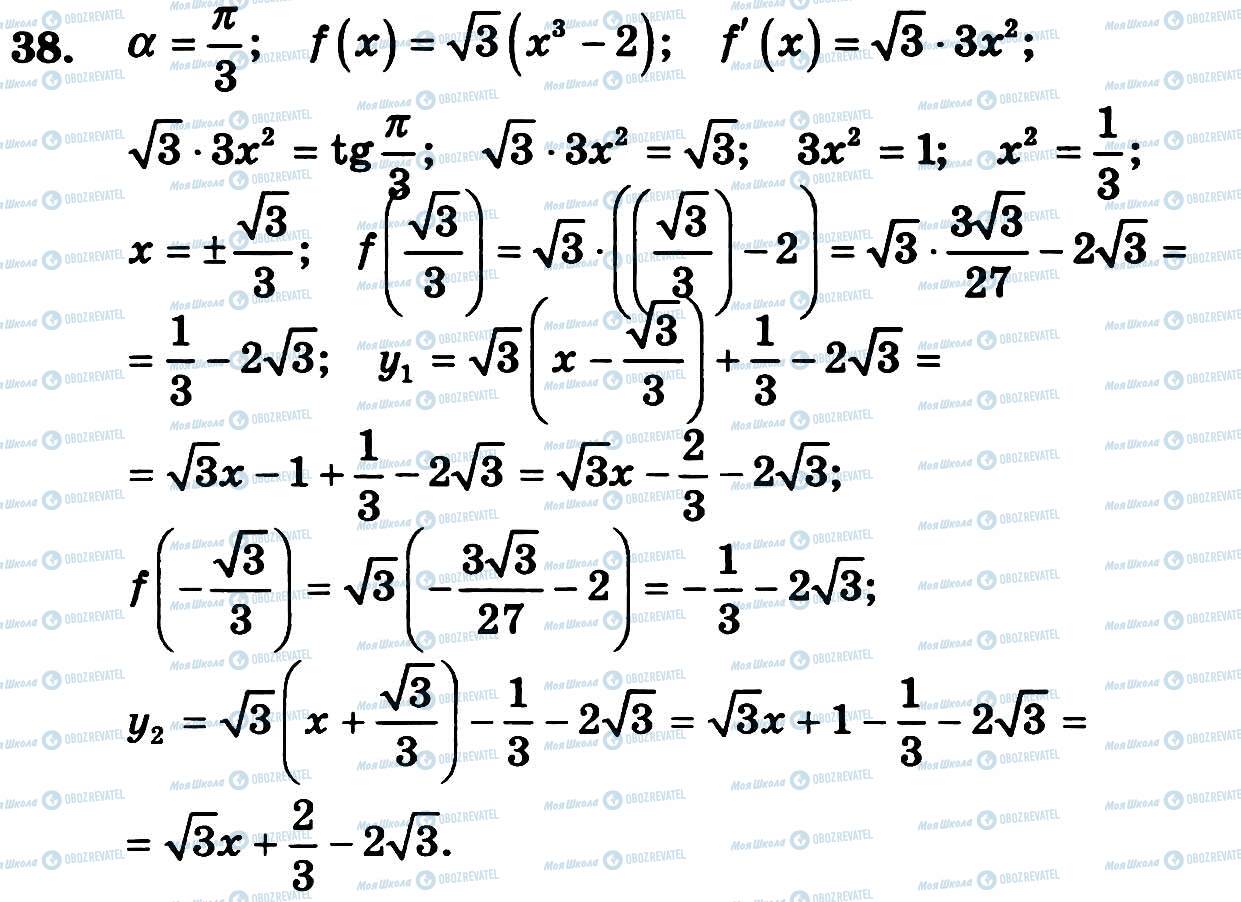 38. α = π/3; f(x) = √3(x³ − 2); f′(x) = √3 · 3x²;
√3 · 3x² = tg π/3; √3 · 3x² = √3; 3x² = 1; x² = 1/3;
x = ±√3/3; f(√3/3) = √3 · ((√3/3) − 2) = √3 · 3√3/27 − 2√3 =
= 1/3 − 2√3; y₁ = √3(x − √3/3) + 1/3 − 2√3 =
= √3x − 1 + 1/3 − 2√3 = √3x − 2/3 − 2√3;
f(−√3/3) = √3(−3√3/27 − 2) = −1/3 − 2√3;
y₂ = √3(x + √3/3) − 1/3 − 2√3 = √3x + 1 − 1/3 − 2√3 =
= √3x + 2/3 − 2√3.
Моя Школа OBOZREVATEL